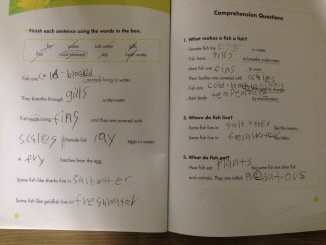 Finish each sentence using the words in the box.
fry scales salt water gills
fins cold-blooded lay fresh water
Fish are cold-blooded animals living in water.
They breathe through gills underwater.
Fish swim using fins and they are covered with
scales. Female fish lay eggs in water.
A fry hatches from the egg.
Some fish like sharks live in saltwater
Some fish like goldfish live in freshwater
Comprehension Questions
1. What makes a fish a fish?
Female fish lay eggs in water.
Fish have gills to breathe underwater.
Most fish use fins to swim.
Their bodies are covered with scales
Fish are cold-blooded
their body temperature by environment.
2. Where do fish live?
Some fish live in saltwater like the oceans.
Some fish live in freshwater like lakes.
3. What do fish eat?
Most fish eat plants but some fish eat other fish
and animals. They are called predators